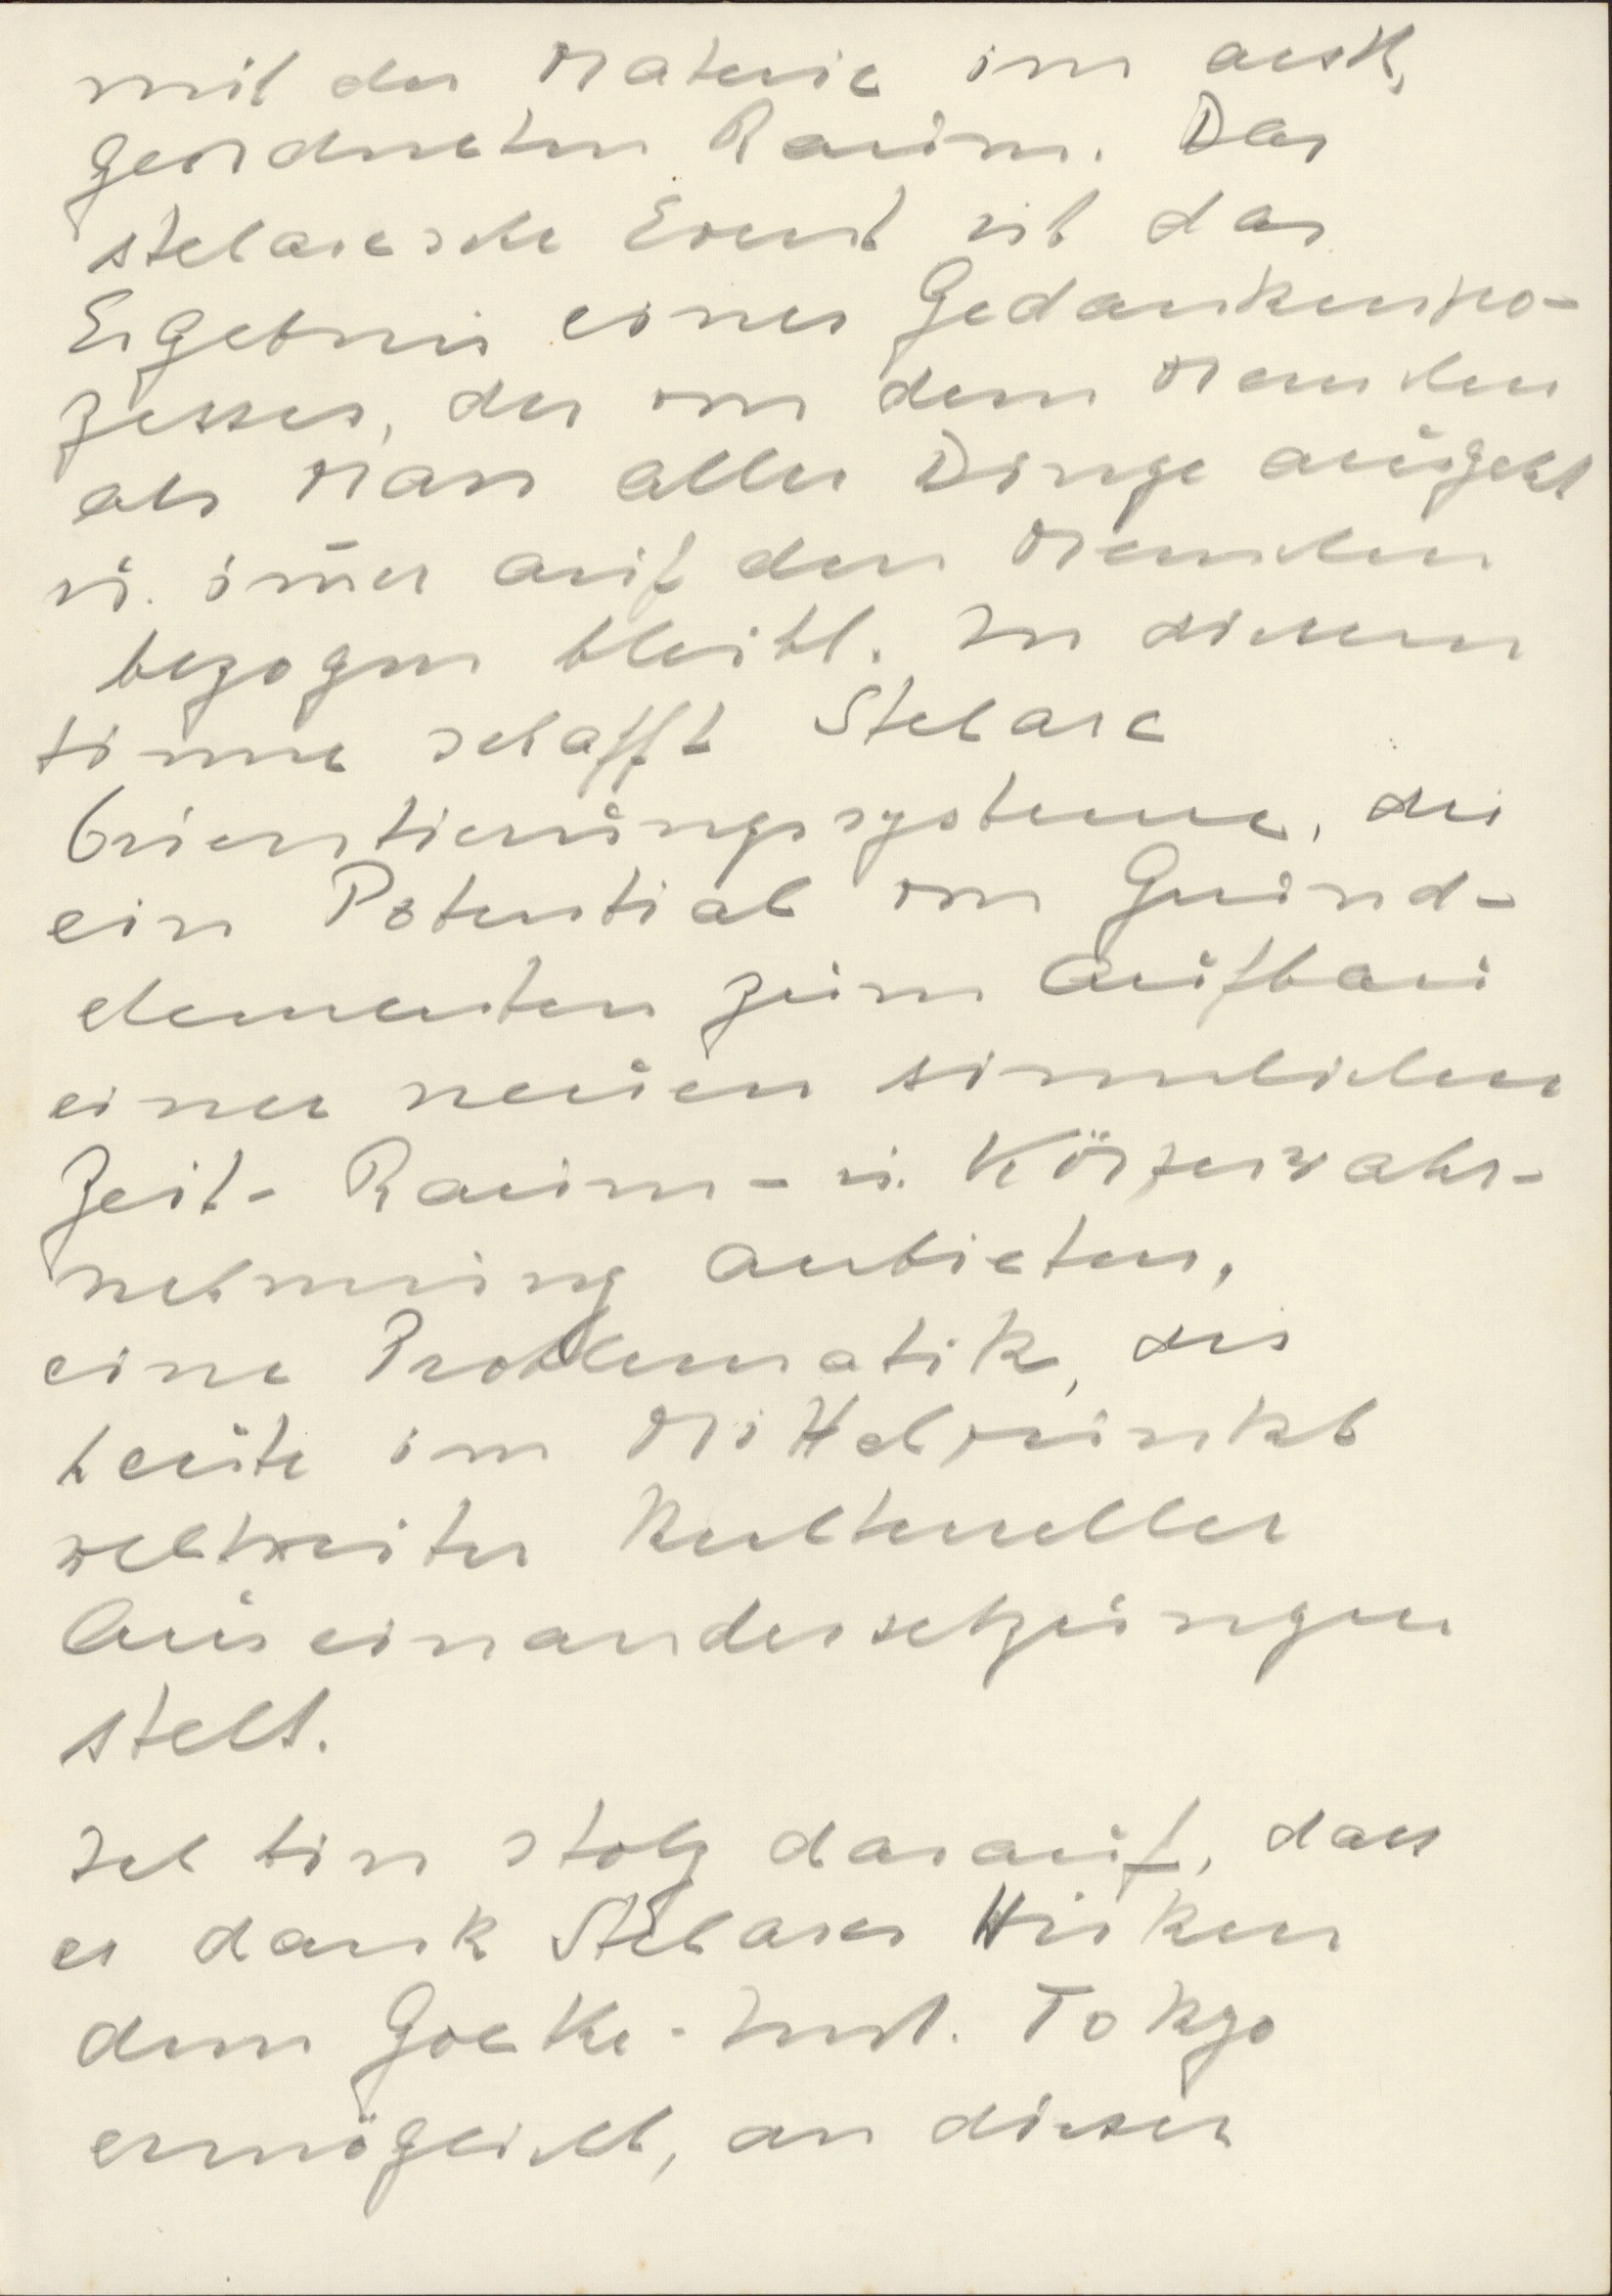 mit der Materie im aesth.
geordneten Raum. Das
stelarcsche Event ist das
Ergebnis eines Gedankenpro-
zesses, der von dem Menschen
als Mass aller Dinge ausgeht
u. im̄er auf den Menschen
bezogen bleibt. In diesem
Sinne schafft Stelarc
Orientierungssysteme, die
ein Potential von Grund-
elementen zum Aufbau
einer neuen sinnlichen
Zeit- Raum- u. Körperwahr-
nehmung anbieten,
eine Problematik, die
heute im Mittelpunkt
weltweiter kultureller
Auseinandersetzungen
steht.
Ich bin stolz darauf, dass
es dank Stelarcs Wirken
dem Goethe-Inst. Tokyo
ermöglicht, an dieser